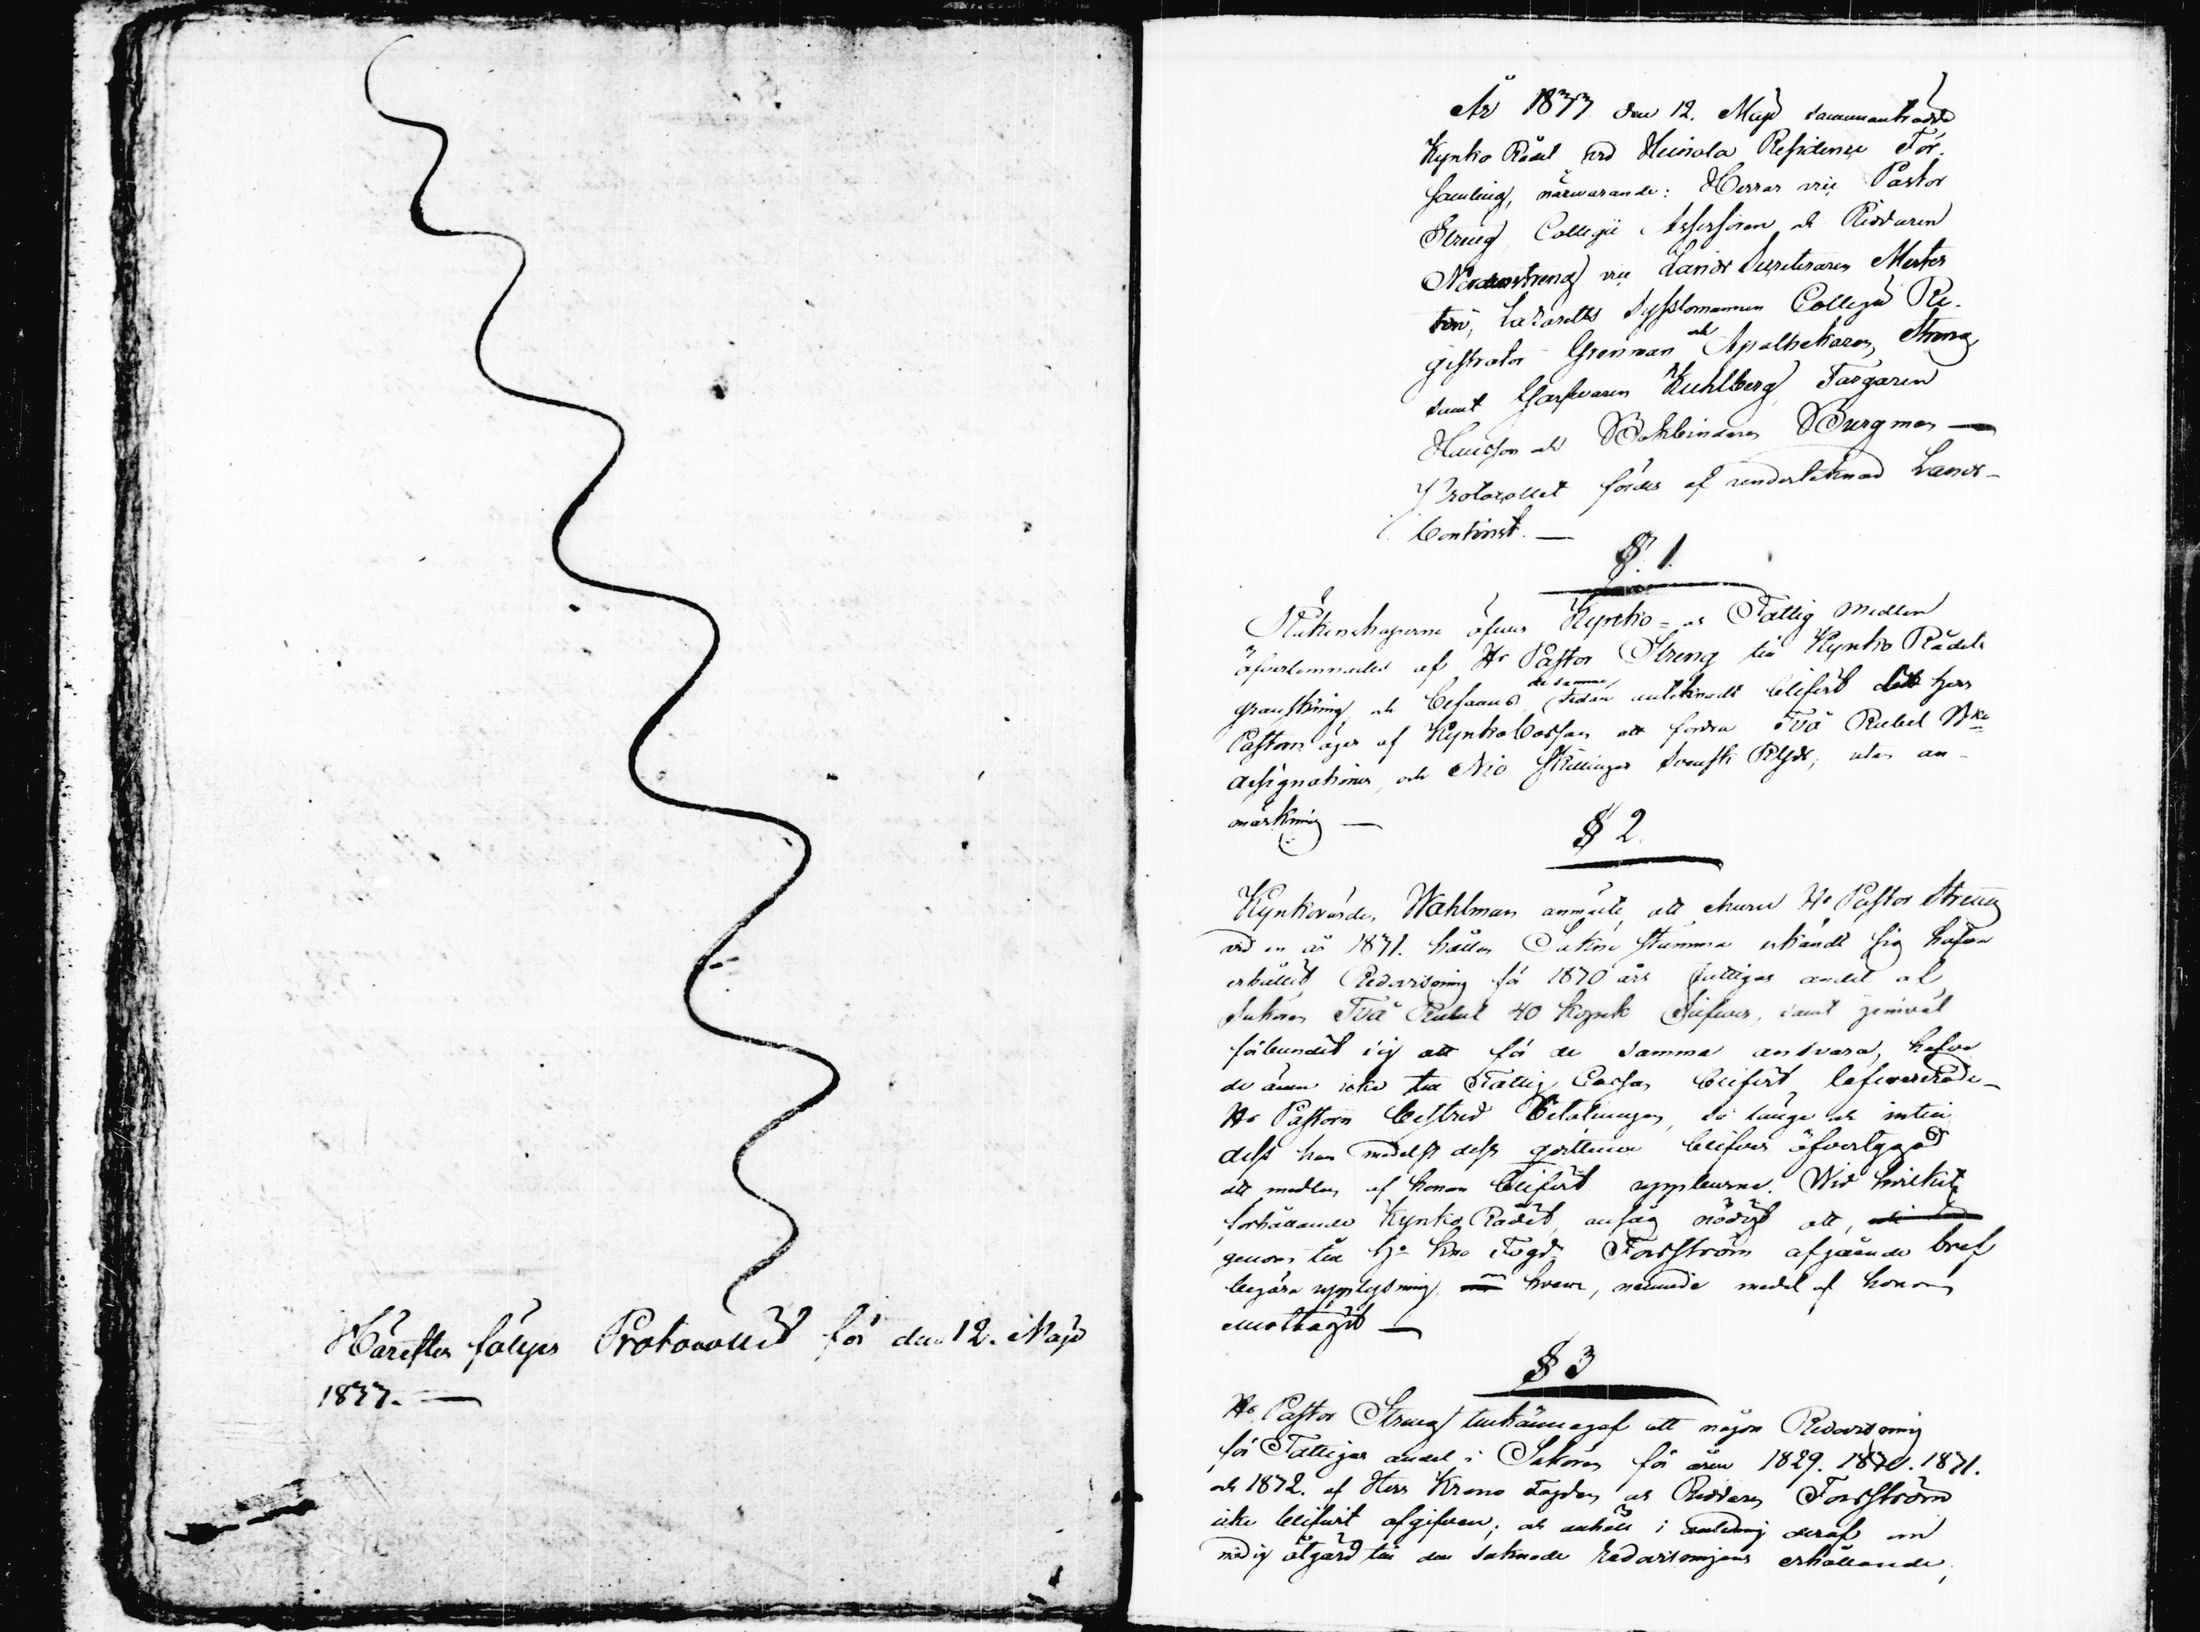 Härefter följer Protocollet för den 12. Maji
1833. —
År 1833 den 12. Maji sammanträdde
Kyrko Rådet vid Heinola Residence För-
samling, närvarande: Herrar vice Pastor
Streng, Collegii Assessoren och Riddaren
Nordenstreng vice Lands Secreteraren Merten
Lazaretts Sysslomannen Collegii Re-
gistrator Grenman och Apothekaren Streng
samt Garfvaren Kuhlberg, Färgaren
och Bokbindaren Bergman —
Protocollet fördes af undertecknad Lands-
Contorist. —
§. 1.
Räkenskaperne öfver Kyrko- och Fattig medlen
öfverlemnades af Hr Pastor Streng till Kyrko Rådets
granskning, och befanns, sedan de samma antecknadt blifvit att Herr
Pastorn äger af Kyrko Cassan att fordra Två Rubel Bko
Assignationer, och Nio Skillingar Svenskt Rgds, utan an-
märkning —
§ 2.
Kyrkovärden Wahlman anmälte, att ehuru Hr Pastor Streng
vid en år 1831. hållen Sockne stämma erkändt sig hafva
erhållit Redovisning för 1830 års fattigas andel af
Saköron Två Rubel 40 Kopek Silfver, samt jemväl
förbundit sig att för de samma ansvara, hafva
de ännu icke till Fattig Cassan blifvit lefvererade —
Hr Pastorn bestred betalningen, så länge och intill
dess han medelst dess qvittence blifver öfvertygad
att medlen af honom blifvit uppburne. Wid hvilket
förhållande Kyrko Rådet ansåg nödigt att,
genom till Hr Krono Fogd. Forsström afgående bref
begära upplysning hvem, nemnde medel af honom
emottagit —
§ 3
Hr Pastor Streng tillkännagaf att någon Redovisning
för Fattigas andel i Saköron för åren 1829. 1830. 1831.
och 1832. af Herr Krono Fogden och Riddaren Forsström
icke blifvit afgifven; och anhöll i anledning deraf om
nödig åtgärd till den saknade redovisningens erhållande,